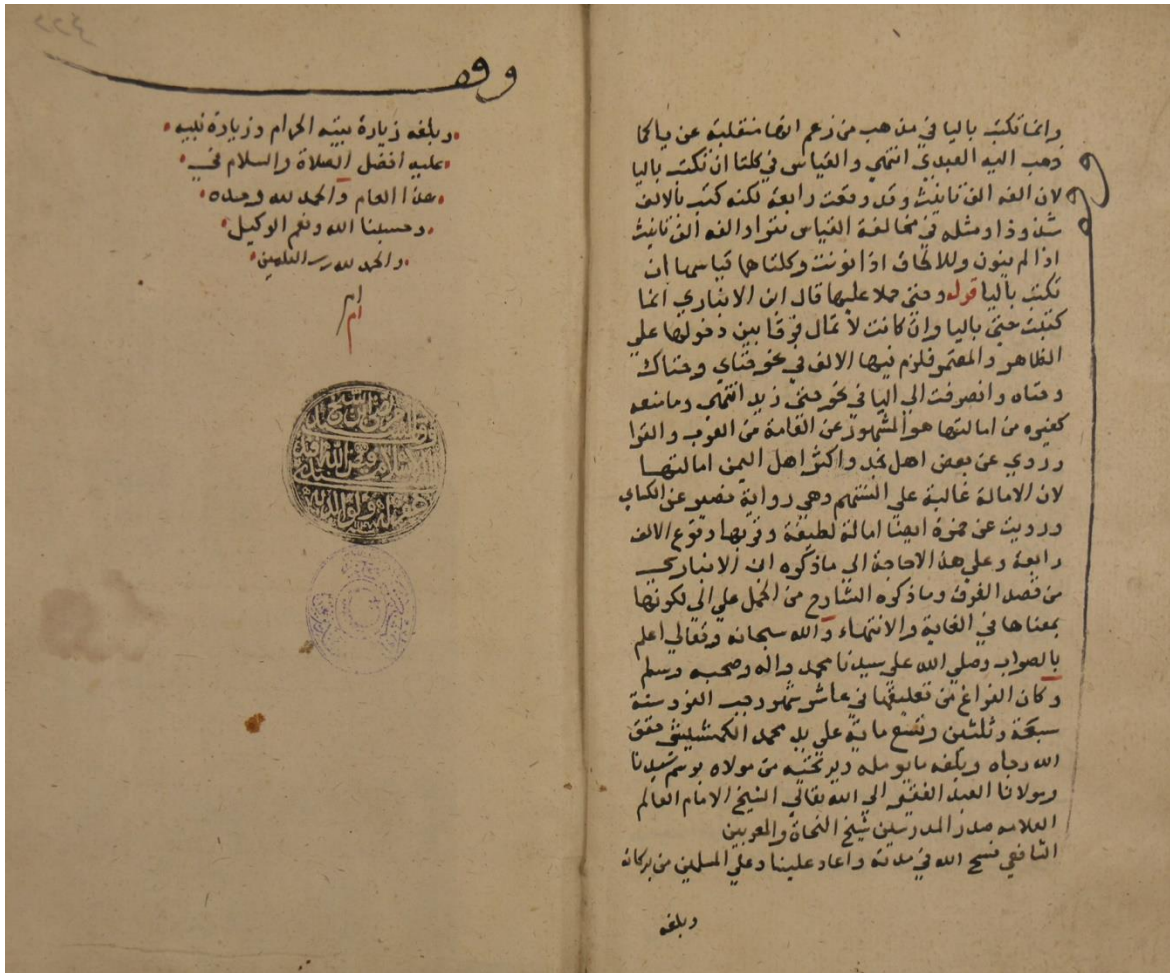 وانما تكتب باليا في مذهب من زعم انها منقلبة عن يا كما
ذهب اليه العبدي انتهي والقياس في كلتا ان تكتب باليا
لان الفه الف تانيث وقد وقعت رابعة لكنه كتب بالالف
شذوذا ومثله في مخالفة القياس تترا والفه الف تانيث
اذا لم ينون وللالحاق اذا نونت وكلتاهما قياسها ان
تكتب باليا قوله وحتي حملا عليها قال ابن الانباري انما
كتبت حتي باليا وان كانت لا تمال فرقا بين دخولها علي
الظاهر والمضمر فلزم فيها الالف في نحو حتاي وحتاك
وحتاه وانصرفت الي اليا في نحو حتي زيد انتهي وما منعه
كغيره من امالتها هو المشهور عن العامة من العرب والقرا
وروي عن بعض اهل نجد واكثر اهل اليمن امالتها
لان الامالة غالبة علي السنتهم وهي رواية نصير عن الكساي
ورويت عن حمزة ايضا امالة لطيفة وقربها وقوع الالف
رابعة وعلي هذا لا حاجة الي ما ذكره ابن الانباري
من قصد الفرق وما ذكره الشارح من الحمل علي الي لكونها
بمعناها في الغاية والانتهاء والله سبحانه وتعالي اعلم
بالصواب وصلي الله علي سيدنا محمد واله وصحبه وسلم
وكان الفراغ من تعليقها في عاشر شهر رجب الفرد سنة
سبعة وثلثين وتسع ماية علي يد محمد حقق
الله رجاه وبلغه ما يومله ويرتجيه من مولاه برسم سيدنا
ومولانا العبد الفقير الي الله تعالي الشيخ الامام العالم
العلامه صدر المدرسين شيخ النحاة والمعربين
الشافعي فسح الله في مدته واعاد علينا وعلي المسلمين من بركاته
وبلغه
وقف
وبلغه زيارة بيته الحرام وزيارة نبيه
عليه افضل الصلاة والسلام في
هذا العام والحمد لله وحده
وحسبنا الله ونعم الوكيل
والحمد لله رب العلمين